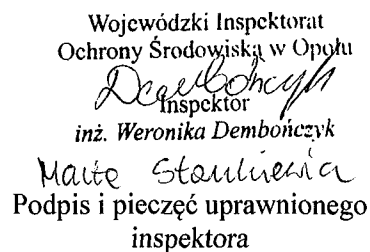 Wojewódzki Inspektorat
Ochrony Środowiska w Opolu
Dembończyk
Inspektor
inż. Weronika Dembończyk
Podpis i pieczęć uprawnionego
inspektora